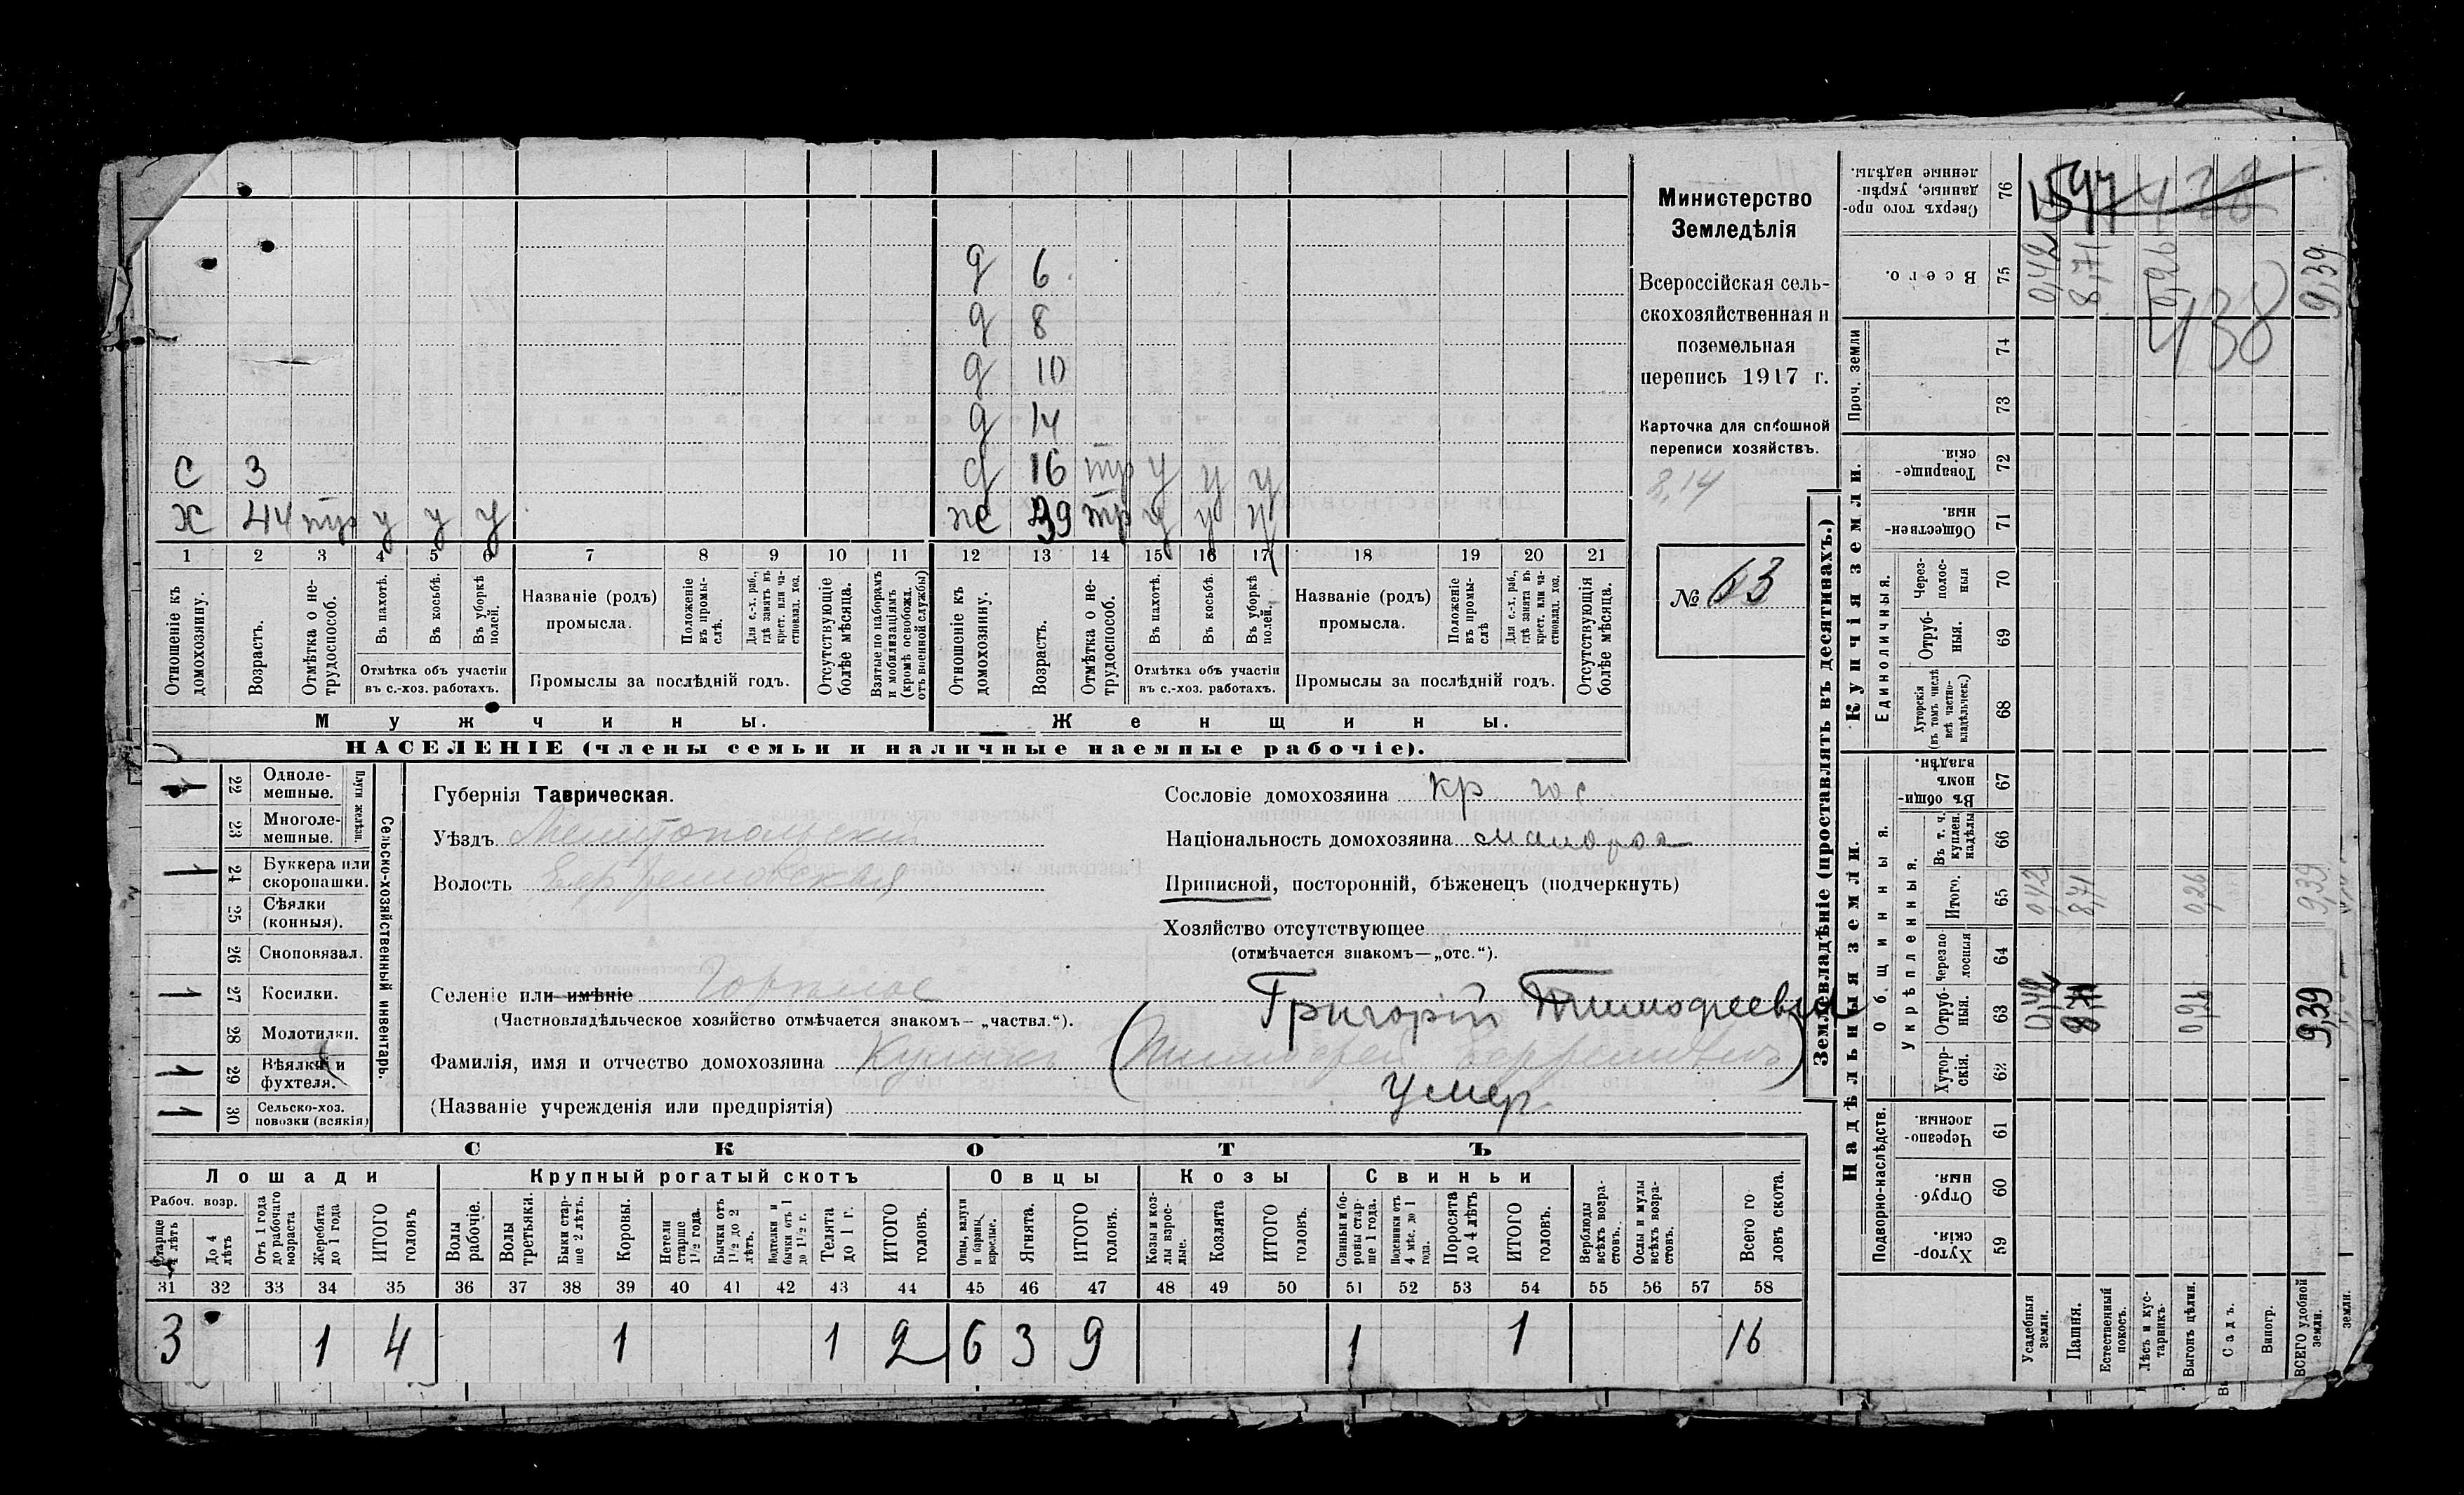 д 6
д 8
д 10
д 14
с 3 д 16 тр у у у
х 44 тр у у у ж 39 тр у у у
1 2 3 4 5 6 7 8 9 10 11 12 13 14 15 16 17 18 19 20 21
Отношеніе къ домохозяину.
Возрастъ.
Отмѣтка о не-трудоспособ.
Въ пахотѣ.
Въ косьбѣ.
Въ уборкѣ полей.
Отмѣтка объ участіи въ с.-хоз. работахъ.
Названіе (родъ) промысла.
Положеніе въ промы-слѣ.
Для с.-х. раб., гдѣ занятъ въ крест. или ча-стновлад. хоз.
Промыслы за послѣдній годъ.
Отсутствующіе болѣе мѣсяца.
Взятые по наборамъ и мобилизаціямъ (кромѣ освобожд. отъ военной службы)
Отношеніе къ домохозяину.
Возрастъ.
Отмѣтка о не-трудоспособ.
Въ пахотѣ.
Въ косьбѣ.
Въ уборкѣ полей.
Отмѣтка объ участіи въ с.-хоз. работахъ.
Названіе (родъ) промысла.
Положеніе въ промы-слѣ
Для с.-х. раб., гдѣ занята въ крест. или ча-стновлад. хоз.
Промыслы за послѣдній годъ.
Отсутствующія болѣе мѣсяца.
Мужчины. Женщины.
НАСЕЛЕНІЕ (члены семьи и наличные наемные рабочіе).
Министерство
Земледѣлія
Всероссійская сель-
скохозяйственная и
поземельная
перепись 1917 г.
Карточка для сплошной
переписи хозяйствъ.
8,14
№ 63
Сельско-хозяйственный инвентарь.
Плуги желѣзн.
1 22 Одноле-мешные.
23 Многоле-мешные.
1 24 Буккера или скоропашки.
25 Сѣялки (конныя).
26 Сноповязал.
1 27 Косилки.
28 Молотилки.
1 29 Вѣялки и фухтеля.
1 30 Сельско-хоз. повозки (всякія)
Губернія Таврическая.
Уѣздъ Мелитопольскій
Волость Ефремовская
Селеніе или имѣніе Горѣлое
(Частновладѣльческое хозяйство отмѣчается знакомъ— „частвл.“).
Григорій Тимофеевич
Фамилія, имя и отчество домохозяина Куликъ (Тимофей Ефремовичъ)
умер
(Названіе учрежденія или предпріятія)
Сословіе домохозяина кр гос
Національность домохозяина малорос
Приписной, посторонній, бѣженецъ (подчеркнуть)
Хозяйство отсутствующее
(отмѣчается знакомъ—„отс.“).
СКОТЪ
Лошади Крупный рогатый скотъ Овцы Козы Свиньи
Рабоч. возр.
Старше 4 лѣтъ
До 4 лѣтъ
Отъ 1 года до рабочаго возраста
Жеребята до 1 года
ИТОГО головъ
Волы рабочіе.
Волы третьяки.
Быки стар-ше 2 лѣтъ.
Коровы.
Нетели старше 1½ года.
Бычки отъ 1½ до 2 лѣтъ.
Подтелки и бычки отъ 1 до 1½ г.
Телята до 1 г.
ИТОГО головъ.
Овцы, валухи и бараны взрослые.
Ягнята.
ИТОГО головъ.
Козы и коз-лы взрос-лые.
Козлята
ИТОГО головъ.
Свиньи и бо-ровы стар-ше 1 года.
Подсвинки отъ 4 мѣс. до 1 года.
Поросята до 4 лѣтъ
ИТОГО головъ.
Верблюды всѣхъ возра-стовъ.
Ослы и мулы всѣхъ возра-стовъ.
Всего го-ловъ скота.
31 32 33 34 35 36 37 38 39 40 41 42 43 44 45 46 47 48 49 50 51 52 53 54 55 56 57 58
3 1 4 1 1 2 6 3 9 1 1 16
Землевладѣніе (проставлять въ десятинахъ.)
Надѣльныя земли. Купчія земли. Проч. земли
Подворно-наслѣдств. Общинныя. Укрѣпленныя. Единоличныя.
59 Хутор-скія.
60 Отруб-ныя.
61 Черезпо-лосныя
62 Хутор-скія.
63 Отруб-ныя.
64 Черезпо-лосныя
65 Итого.
66 Въ т. ч. куплен. надѣлы
67 Въ общин-номъ владѣн.
68 Хуторскія (въ томъ числѣ всѣ частно-владѣльческ.)
69 Отруб-ныя.
70 Через-полос-ныя
71 Обществен-ныя.
72 Товарище-скія.
73
74
75 Всего.
76 Сверхъ того про-данные, укрѣп-ленные надѣлы.
Усадебныя земли.
Пашня.
Естественный покосъ.
Лѣсъ и кус-тарникъ.
Выгонъ цѣлин.
Садъ.
Виногр.
ВСЕГО удобной земли.
земли.
0,42 8,71 0,26 9,39
0,42 8,71 0,26 9,39
0,42 8,71 0,26 9,39
1597 428
438